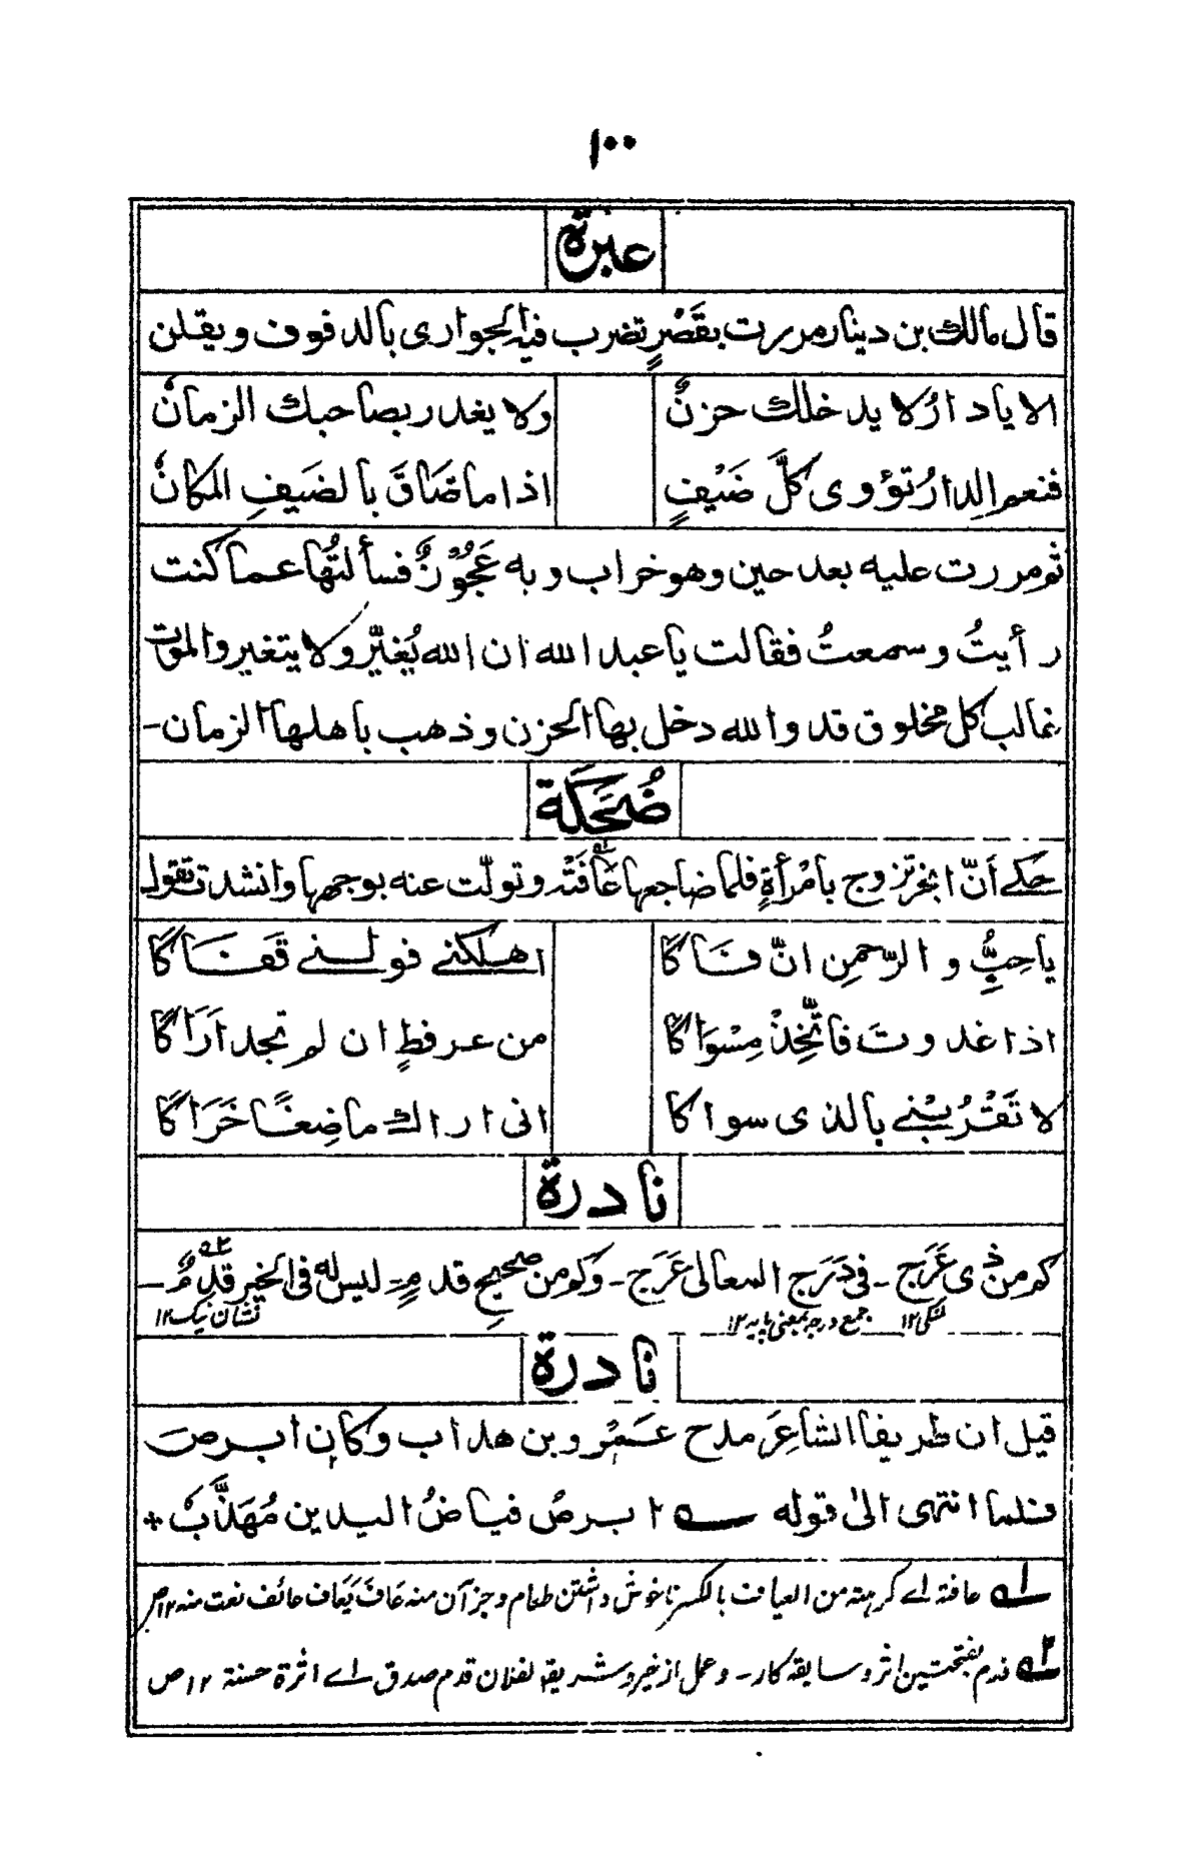 ۱۰۰
عبرة
قال مالك بن دينار مررت بقَصْرٍ تضرب فيه الجوارى بالدفوف ويقلن
الا يا دارُ لا يدخلك حزنٌ ولا يغدر بصاحبك الزمانُ
فنعم الدارُ تؤوى كلَّ ضَيْفٍ اذا ما ضَاقَ بالضَيفِ المكانُ
ثم مررت عليه بعد حين وهو خراب وبه عَجُوْزٌ فسألتُها عما كنت
رأيتُ وسمعتُ فقالت يا عبد الله ان الله يُغيّر ولا يتغير والموت
غالب كل مخلوق قد والله دخل بها الحزن وذهب باهلها الزمان-
ضُحَكَة
حكے اَنّ ابخر تزوج بامْرأةٍ فلما ضاجعها عَافَتْه وتولّت عنه بوجهها وانشدت تقول
يا حِبُّ والرّحمنِ انّ فَاكَا اهلكنے فولنے قَفَاكَا
اذا غدوتَ فاتّخِذْ مِسْوَاكَا من عرفطٍ ان لم تجد اَرَاكَا
لا تَقْرُبْنے بالذى سواكا انى اراك ماضِغًا خَرَاكَا
نادرة
كم من ذى عَرَج - فى دَرَج المعالى عَرَج - وكم من صحيحِ قدمٍ - ليس له فى الخير قدمٌ -
لنگی ۱۲ جمع درجه بمعنی پایه ۱۲ نشان نیک ۱۲
نادرة
قيل ان طريفا الشاعِرَ مدح عَمْرو بن هداب وكان ابرص
فلما انتهى الىٰ قوله ابرصُ فياضُ اليدين مُهَذَّبُ +
۱ عافته اے کرهته من العیافت بالکسر ناخوش داشتن طعام و جز آن منه عَافَ یَعَاف عائف نعت منه ۱۲ ص
۲ قدم بفتحتین اثر و سابقه کار- و عمل از خیر و شر یقہ لفلان قدم صدق اے اثرة حسنة ۱۲ ص